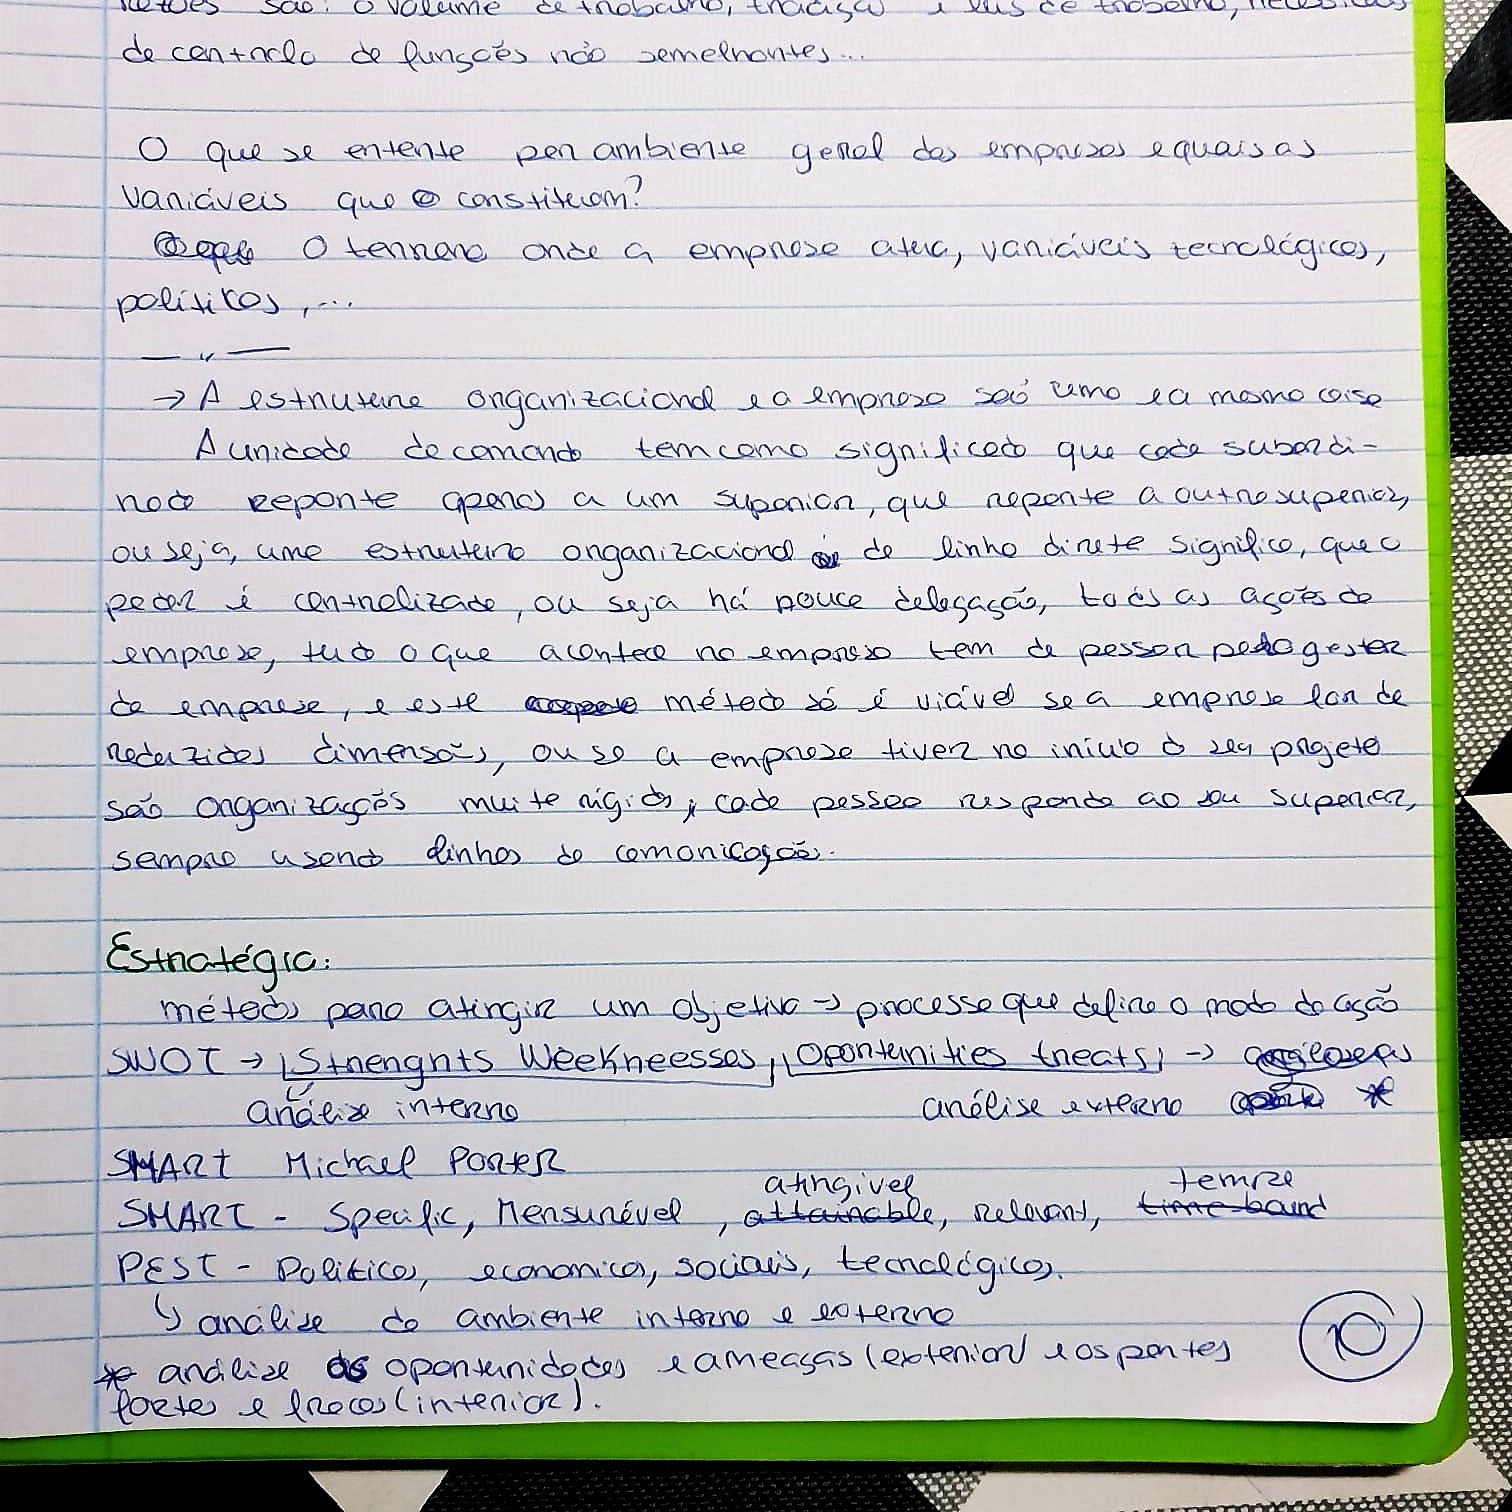 são: o volume de trabalho, tradição e leis de trabalho,
de controlo de funções não semelhantes...
O que se entente por ambiente geral das empresas e quais as
variáveis que o constituem?
O terreno onde a empresa atua, variáveis tecnológicas,
políticas,...
— " —
→ A estrutura organizacional e a empresa são uma e a mesma coisa
A unidade de comando tem como significado que cada subordi-
nado reponte apenas a um suporior, que reponte a outro superior,
ou seja, uma estrutura organizacional de linha direta significa, que o
poder é centralizado, ou seja há pouca delegação, todas as ações da
empresa, tudo o que acontece na empresa tem de passar pelo gestor
da empresa, e este método só é viável se a empresa for de
reduzidas dimensões, ou se a empresa tiver no início do seu projeto
são organizações muito rígidas, cada pessoa responde ao seu superior,
sempre usando linhas de comonicação.
Estratégia:
método para atingir um objetivo → processo que define o modo de ação
SWOT → Strenghts Weekneesses, Oportunities treats →
análise interna análise externa *
SMART Michael Porter
atingível tempo
SMART - Specific, Mensurável, attainable, relevant, time-bound
PEST - Politicos, economicos, sociais, tecnológicos.
↳ análise do ambiente interno e externo
* análise as oportunidades e ameaças (exterior) e os pontos
fortes e fracos (interior).
10